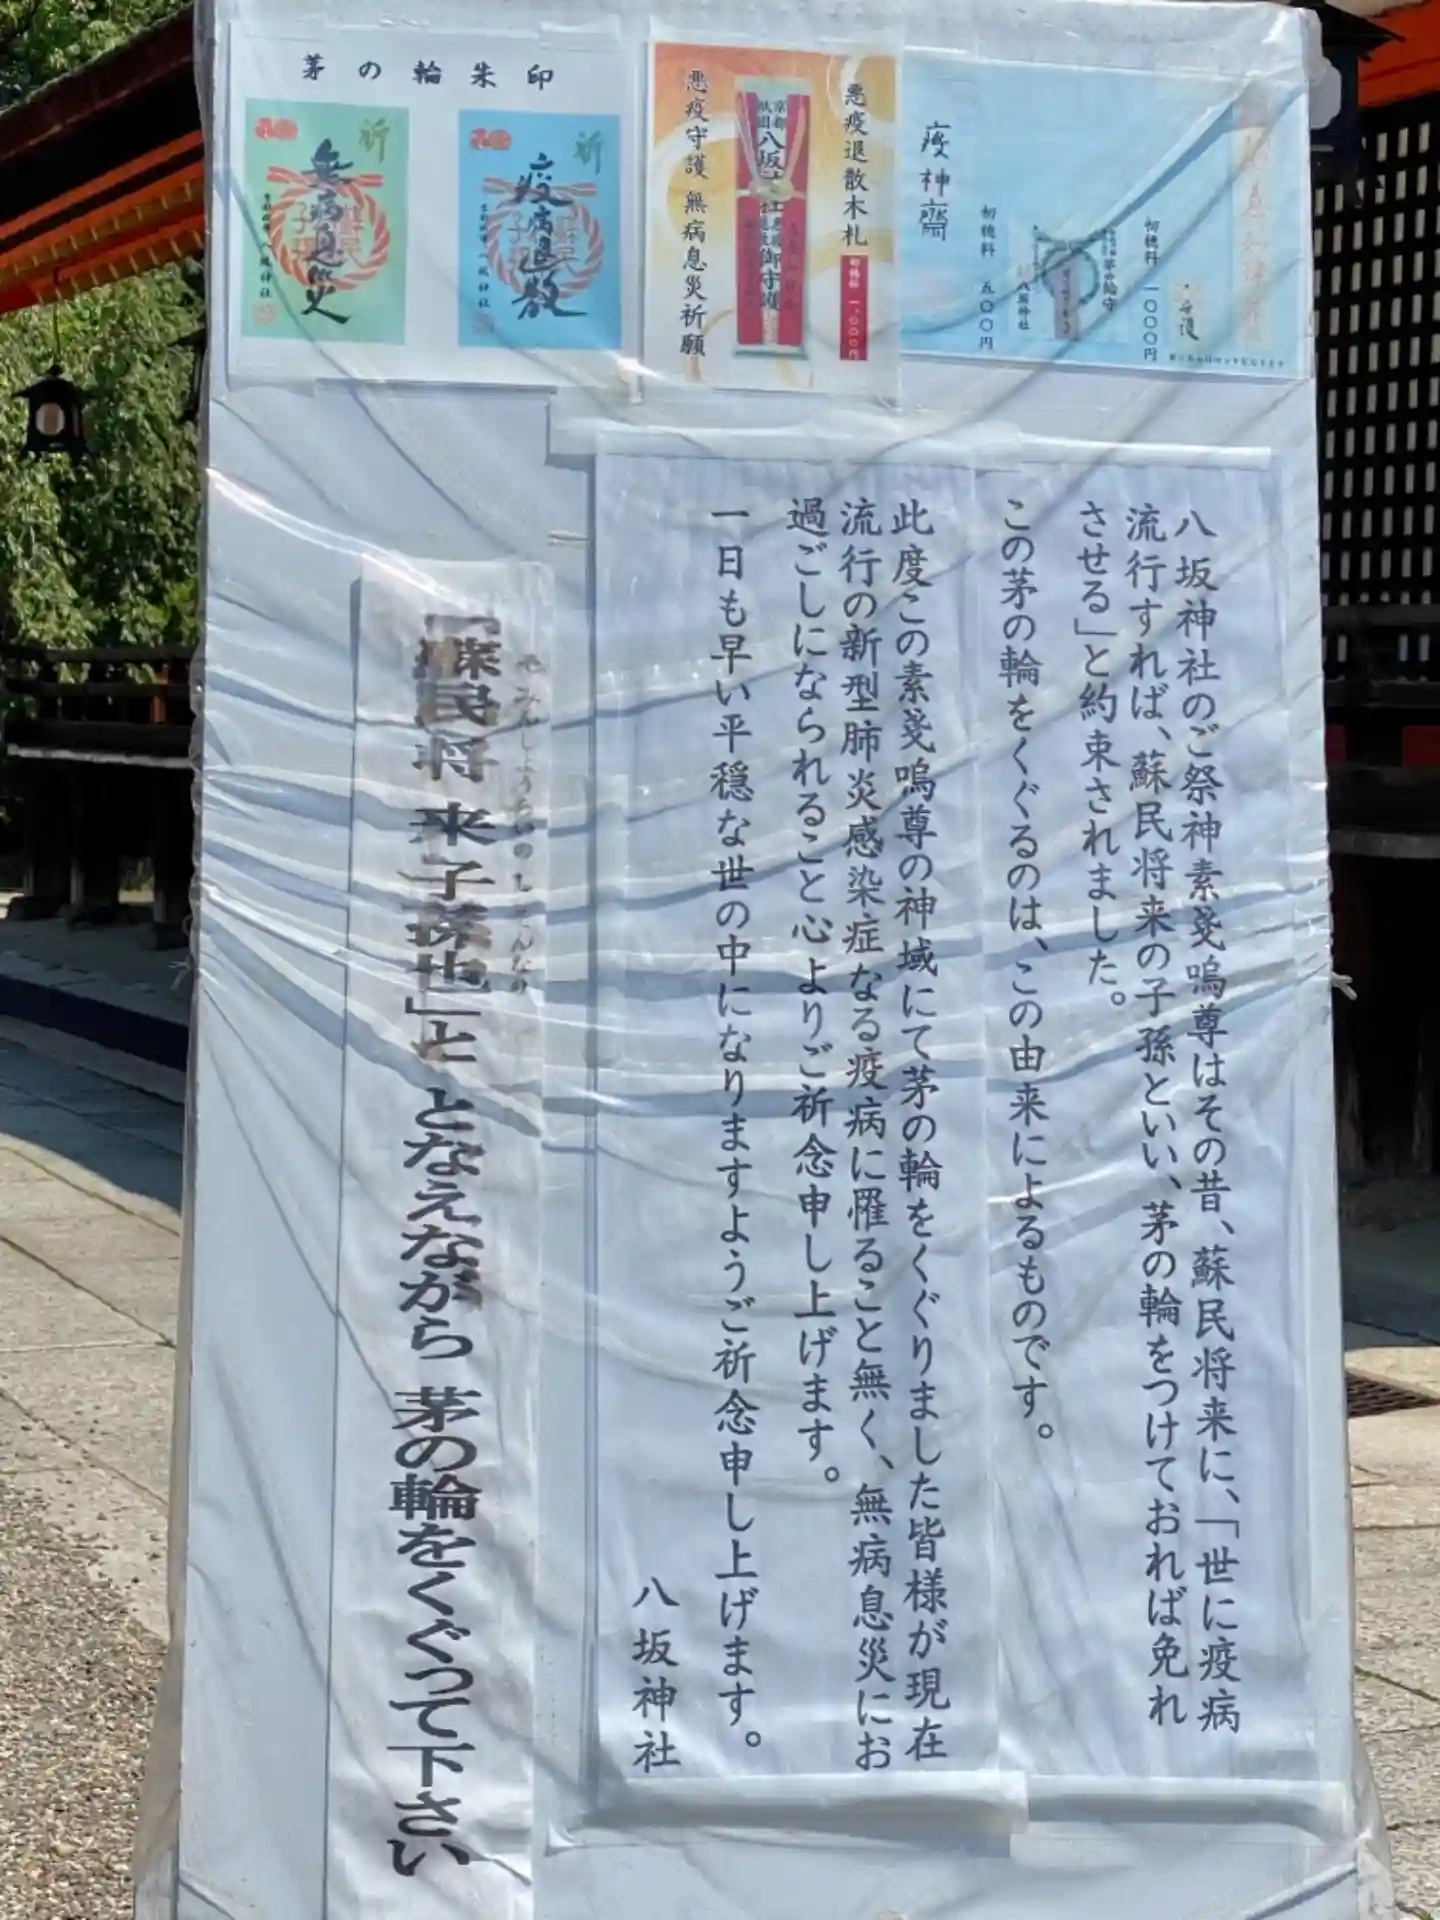 茅の輪朱印
祈
無病息災
八坂神社
祈
疫病退散
八坂神社
悪疫退散木札
初穂料 一、〇〇〇円
京都
祇園
八坂神社
御守護
悪疫守護 無病息災祈願
初穂料 一〇〇〇円
茅の輪守
八坂神社
初穂料 五〇〇円
疫神齋
八坂神社のご祭神素戔嗚尊はその昔、蘇民将来に、「世に疫病
流行すれば、蘇民将来の子孫といい、茅の輪をつけておれば免れ
させる」と約束されました。
この茅の輪をくぐるのは、この由来によるものです。
此度この素戔嗚尊の神域にて茅の輪をくぐりました皆様が現在
流行の新型肺炎感染症なる疫病に罹ること無く、無病息災にお
過ごしになられること心よりご祈念申し上げます。
一日も早い平穏な世の中になりますようご祈念申し上げます。
八坂神社
「蘇民将来子孫也」と となえながら 茅の輪をくぐって下さい